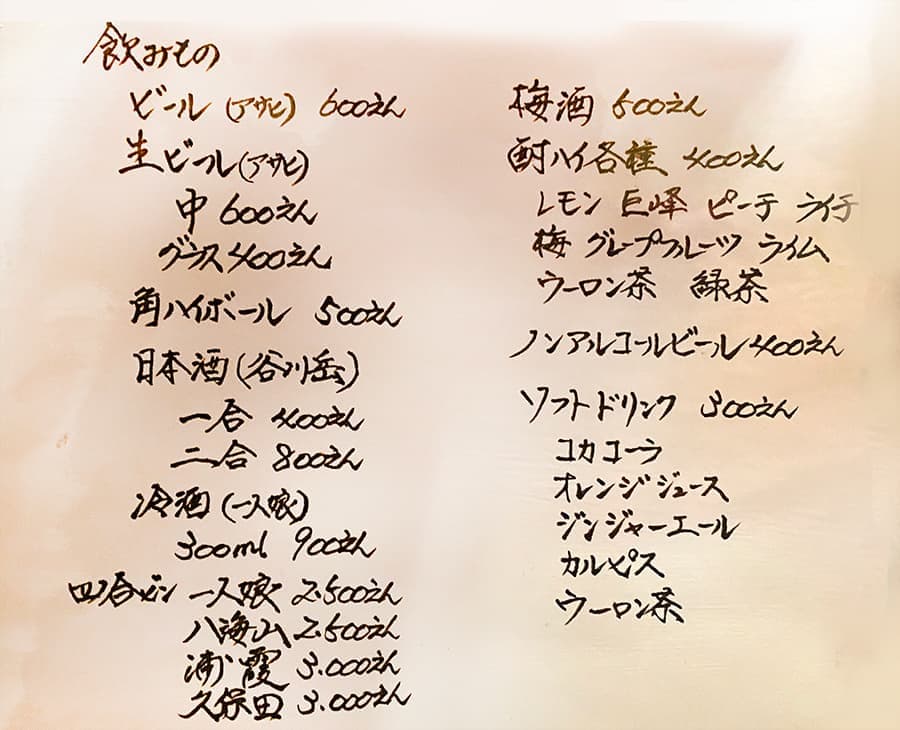 飲みもの
ビール(アサヒ) 600えん
生ビール(アサヒ)
中 600えん
グラス400えん
角ハイボール 500えん
日本酒(谷川岳)
一合 400えん
二合 800えん
冷酒(一人娘)
300ml 900えん
四合ビン 一人娘 2.500えん
八海山 2.500えん
浦霞 3.000えん
久保田 3.000えん
梅酒 500えん
酎ハイ各種 400えん
レモン 巨峰 ピーチ ライチ
梅 グレープフルーツ ライム
ウーロン茶 緑茶
ノンアルコールビール400えん
ソフトドリンク 300えん
コカコーラ
オレンジジュース
ジンジャーエール
カルピス
ウーロン茶